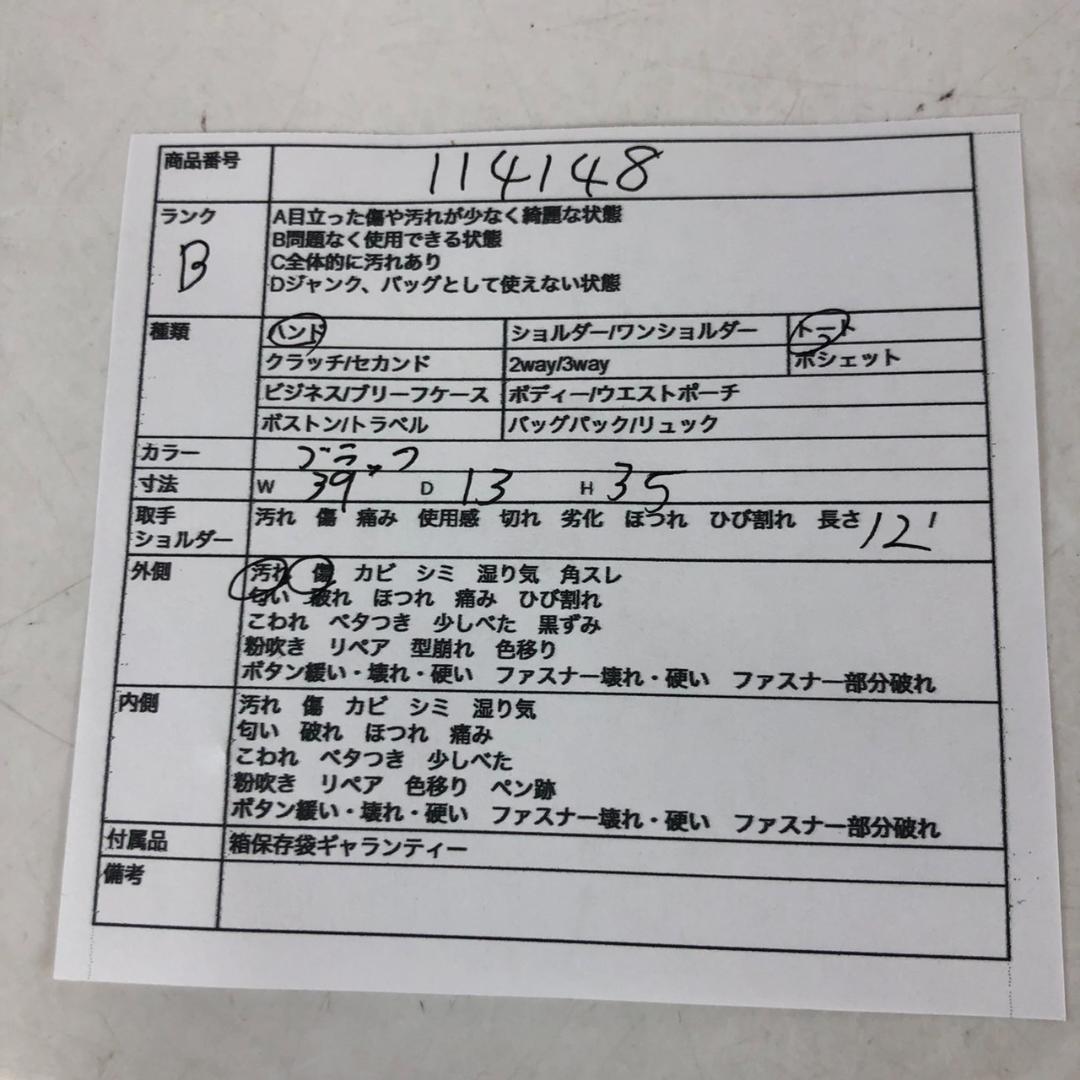 商品番号 114148
ランク A目立った傷や汚れが少なく綺麗な状態
B B問題なく使用できる状態
C全体的に汚れあり
Dジャンク、バッグとして使えない状態
種類 ハンド ショルダー/ワンショルダー トート
クラッチ/セカンド 2way/3way ポシェット
ビジネス/ブリーフケース ボディー/ウエストポーチ
ボストン/トラベル バッグパック/リュック
カラー ブラック
寸法 W 39 D 13 H 35
取手 汚れ 傷 痛み 使用感 切れ 劣化 ほつれ ひび割れ 長さ 12
ショルダー
外側 汚れ 傷 カビ シミ 湿り気 角スレ
匂い 破れ ほつれ 痛み ひび割れ
こわれ ベタつき 少しべた 黒ずみ
粉吹き リペア 型崩れ 色移り
ボタン緩い・壊れ・硬い ファスナー壊れ・硬い ファスナー部分破れ
内側 汚れ 傷 カビ シミ 湿り気
匂い 破れ ほつれ 痛み
こわれ ベタつき 少しべた
粉吹き リペア 色移り ペン跡
ボタン緩い・壊れ・硬い ファスナー壊れ・硬い ファスナー部分破れ
付属品 箱保存袋ギャランティー
備考